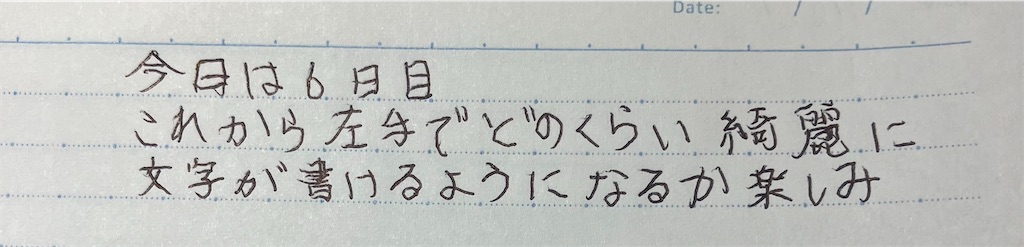 Date: / /
今日は6日目
これから左手でどのくらい綺麗に
文字が書けるようになるか楽しみ